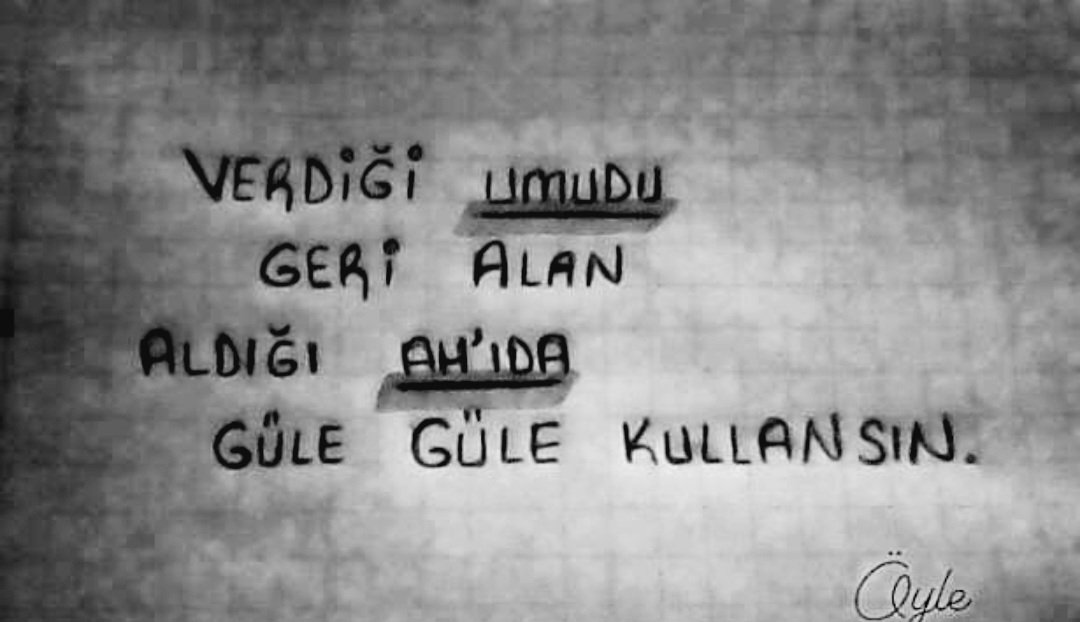 VERDİĞİ UMUDU
GERİ ALAN
ALDIĞI AH'IDA
GÜLE GÜLE KULLANSIN.
Öyle